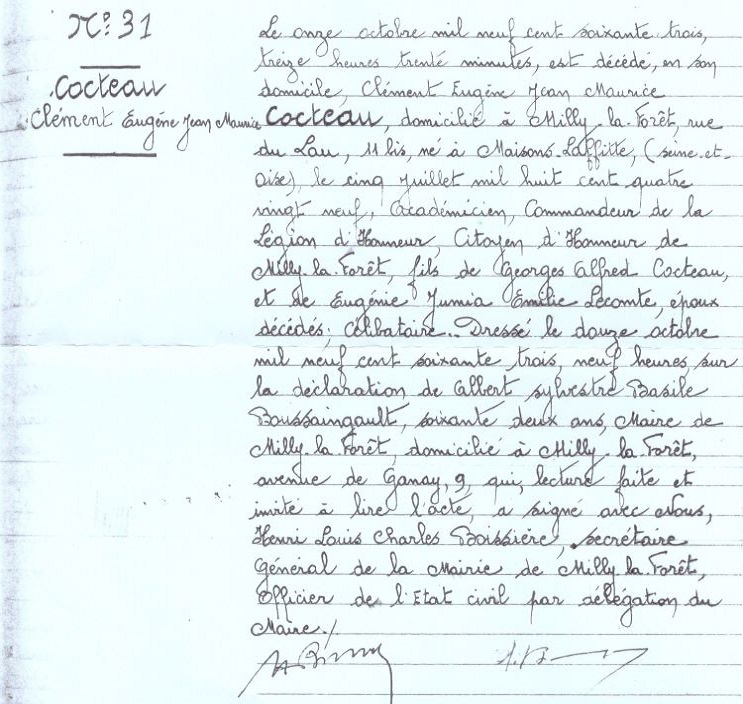 N° 31
Cocteau
Clément Eugène Jean Maurice
Le onze octobre mil neuf cent soixante trois,
treize heures trente minutes, est décédé, en son
domicile, Clément Eugène Jean Maurice
Cocteau, domicilié à Milly-la-Forêt, rue
du Lau, 11 bis, né à Maisons-Laffitte, (seine-et-
oise), le cinq juillet mil huit cent quatre
vingt neuf, Académicien, Commandeur de la
Légion d'Honneur, Citoyen d'Honneur de
Milly-la-Forêt, fils de Georges Alfred Cocteau,
et de Eugénie Junia Emilie Lecomte, époux
décédés; Célibataire.. Dressé le douze octobre
mil neuf cent soixante trois, neuf heures sur
la déclaration de Albert Sylvestre Basile
Boussaingault, soixante deux ans, Maire de
Milly-la-Forêt, domicilié à Milly-la-Forêt,
avenue de Ganay, 9, qui, lecture faite et
invité à lire l'acte, a signé avec Nous,
Henri Louis Charles Boissière, secrétaire
Général de la Mairie de Milly-la-Forêt,
Officier de l'Etat civil par délégation du
Maire./.